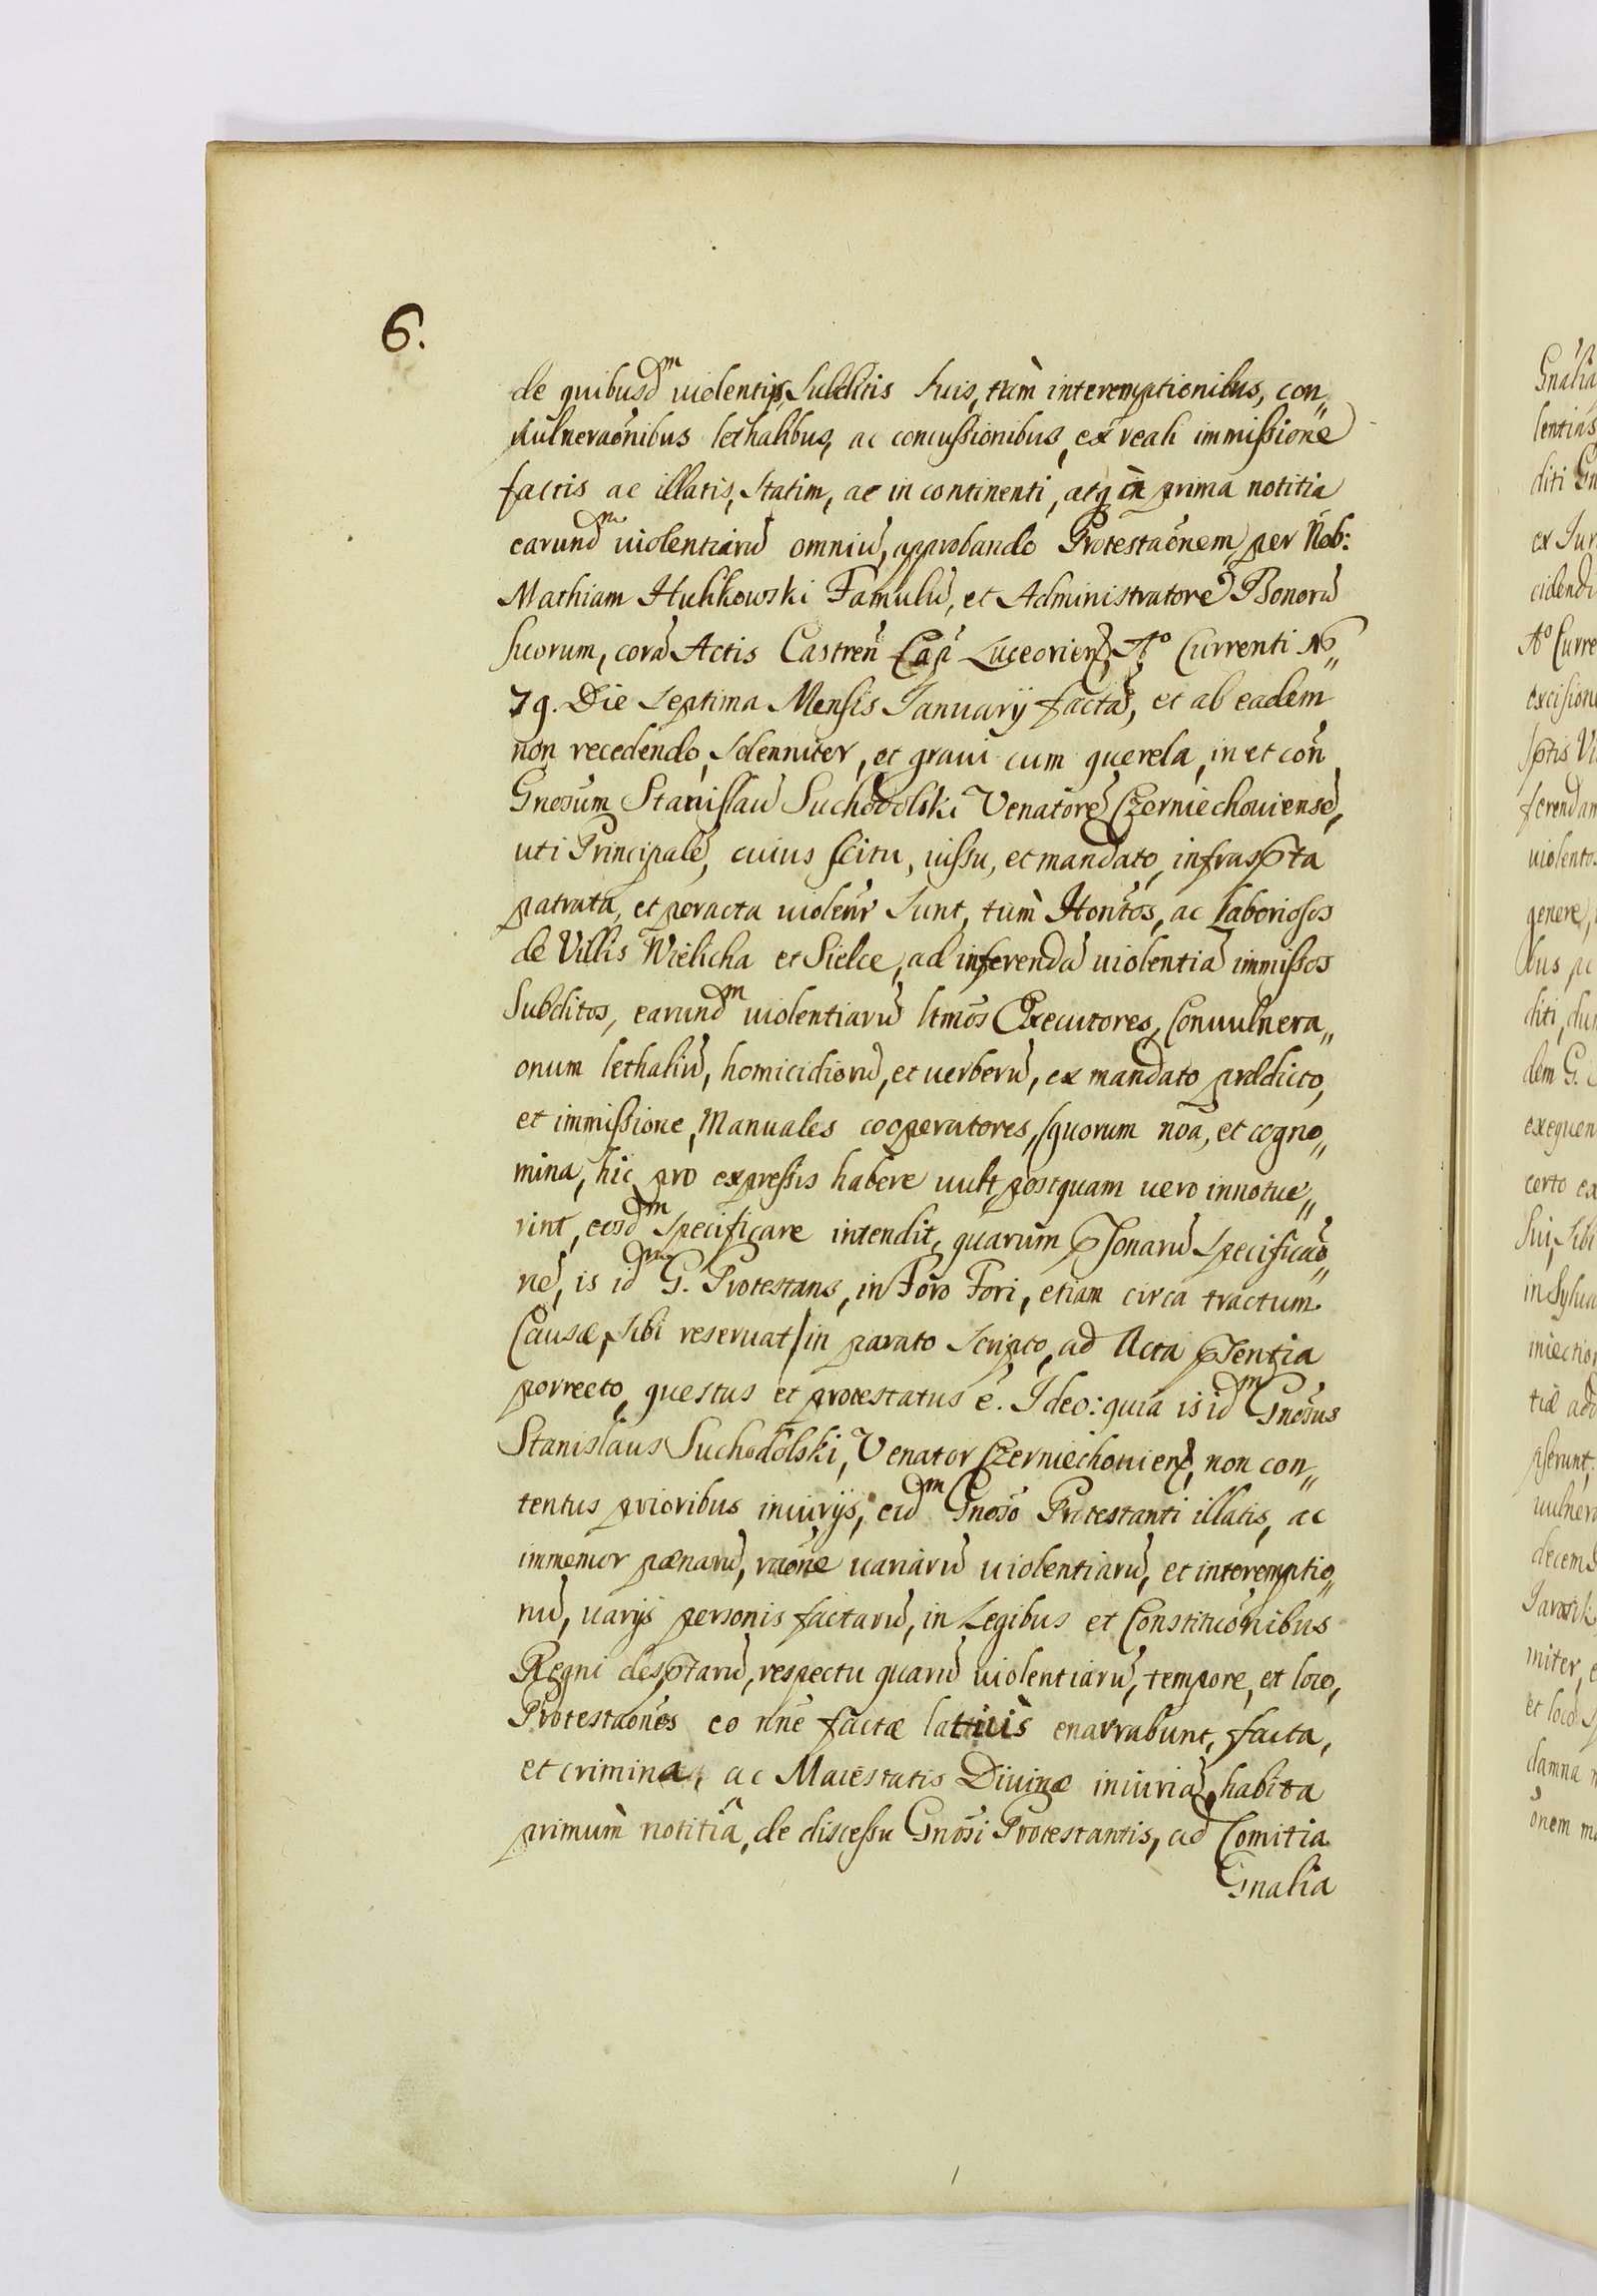 6.
de quibusdm violentijs, Subditis Suis, tùm interemptionibus, con„
vulneraõnibus lethalibus, ac concussionibus, ex reali immissione
factis ac illatis, Statim, ac in continenti, atq in prima notitia
earundm violentiarũ omniũ, approbando Protestaõnem, per Nob:
Mathiam Hulikowski Famulũ, et Administratorẽ Bonorũ
Suorum, corã Actis Castreñ Cap Luceorień, Aº Currenti 16„
79. Die Septima Mensis Januarij factã, et ab eadem
non recedendo, Solenniter, et graui cum querela, in et coñ
Gnosum Stanislaũ Suchodolski Venatorẽ Czerniechouiensẽ,
uti Principalẽ, cuius scitu, iussu, et mandato, infraspta
patrata, et peracta violenr Sunt, tùm Honŝtos, ac Laboriosos
de Villis Wielicha et Sielce, ad inferendã uiolentiã immissos
Subditos, earundm uiolentiarũ ltmõs Executores, Conuulnera„
onum lethaliũ, homicidiorũ, et uerberũ, ex mandato prædicto,
et immissione, Manuales cooperatores, /quorum noã, et cogno„
mina, hic pro expressis habere uult, postquam uero innotue„
rint, eosdm Specificare intendit, quarum psonarũ Specificaõ„
nẽ, is idm G. Protestans, in Foro Fori, etiam circa tractum
Causæ, Sibi reseruat/ in parato Scripto, ad Acta pSentia
porrecto, questus et protestatus ẽ. Ideo: quia is idm Gnosus
Stanislaus Suchodolski, Venator Czerniechouień, non con„
tentus prioribus iniurijs, eidm Gnoso Protestanti illatis, ac
immemor pænarũ, raõne uariarũ uiolentiarũ, et interemptio„
nũ, uarijs personis factarũ, in Legibus et Constituõnibus
Regni desptarũ, respectu quarũ uiolentiarũ, tempore, et loco,
Protestaõnes eo nñe factæ latiùs enarrabunt, facta,
et crimina, ac Maiestatis Diuinæ iniuriã, habita
primùm notitiâ, de discessu Gnosi Protestantis, ad Comitia
Gnalia